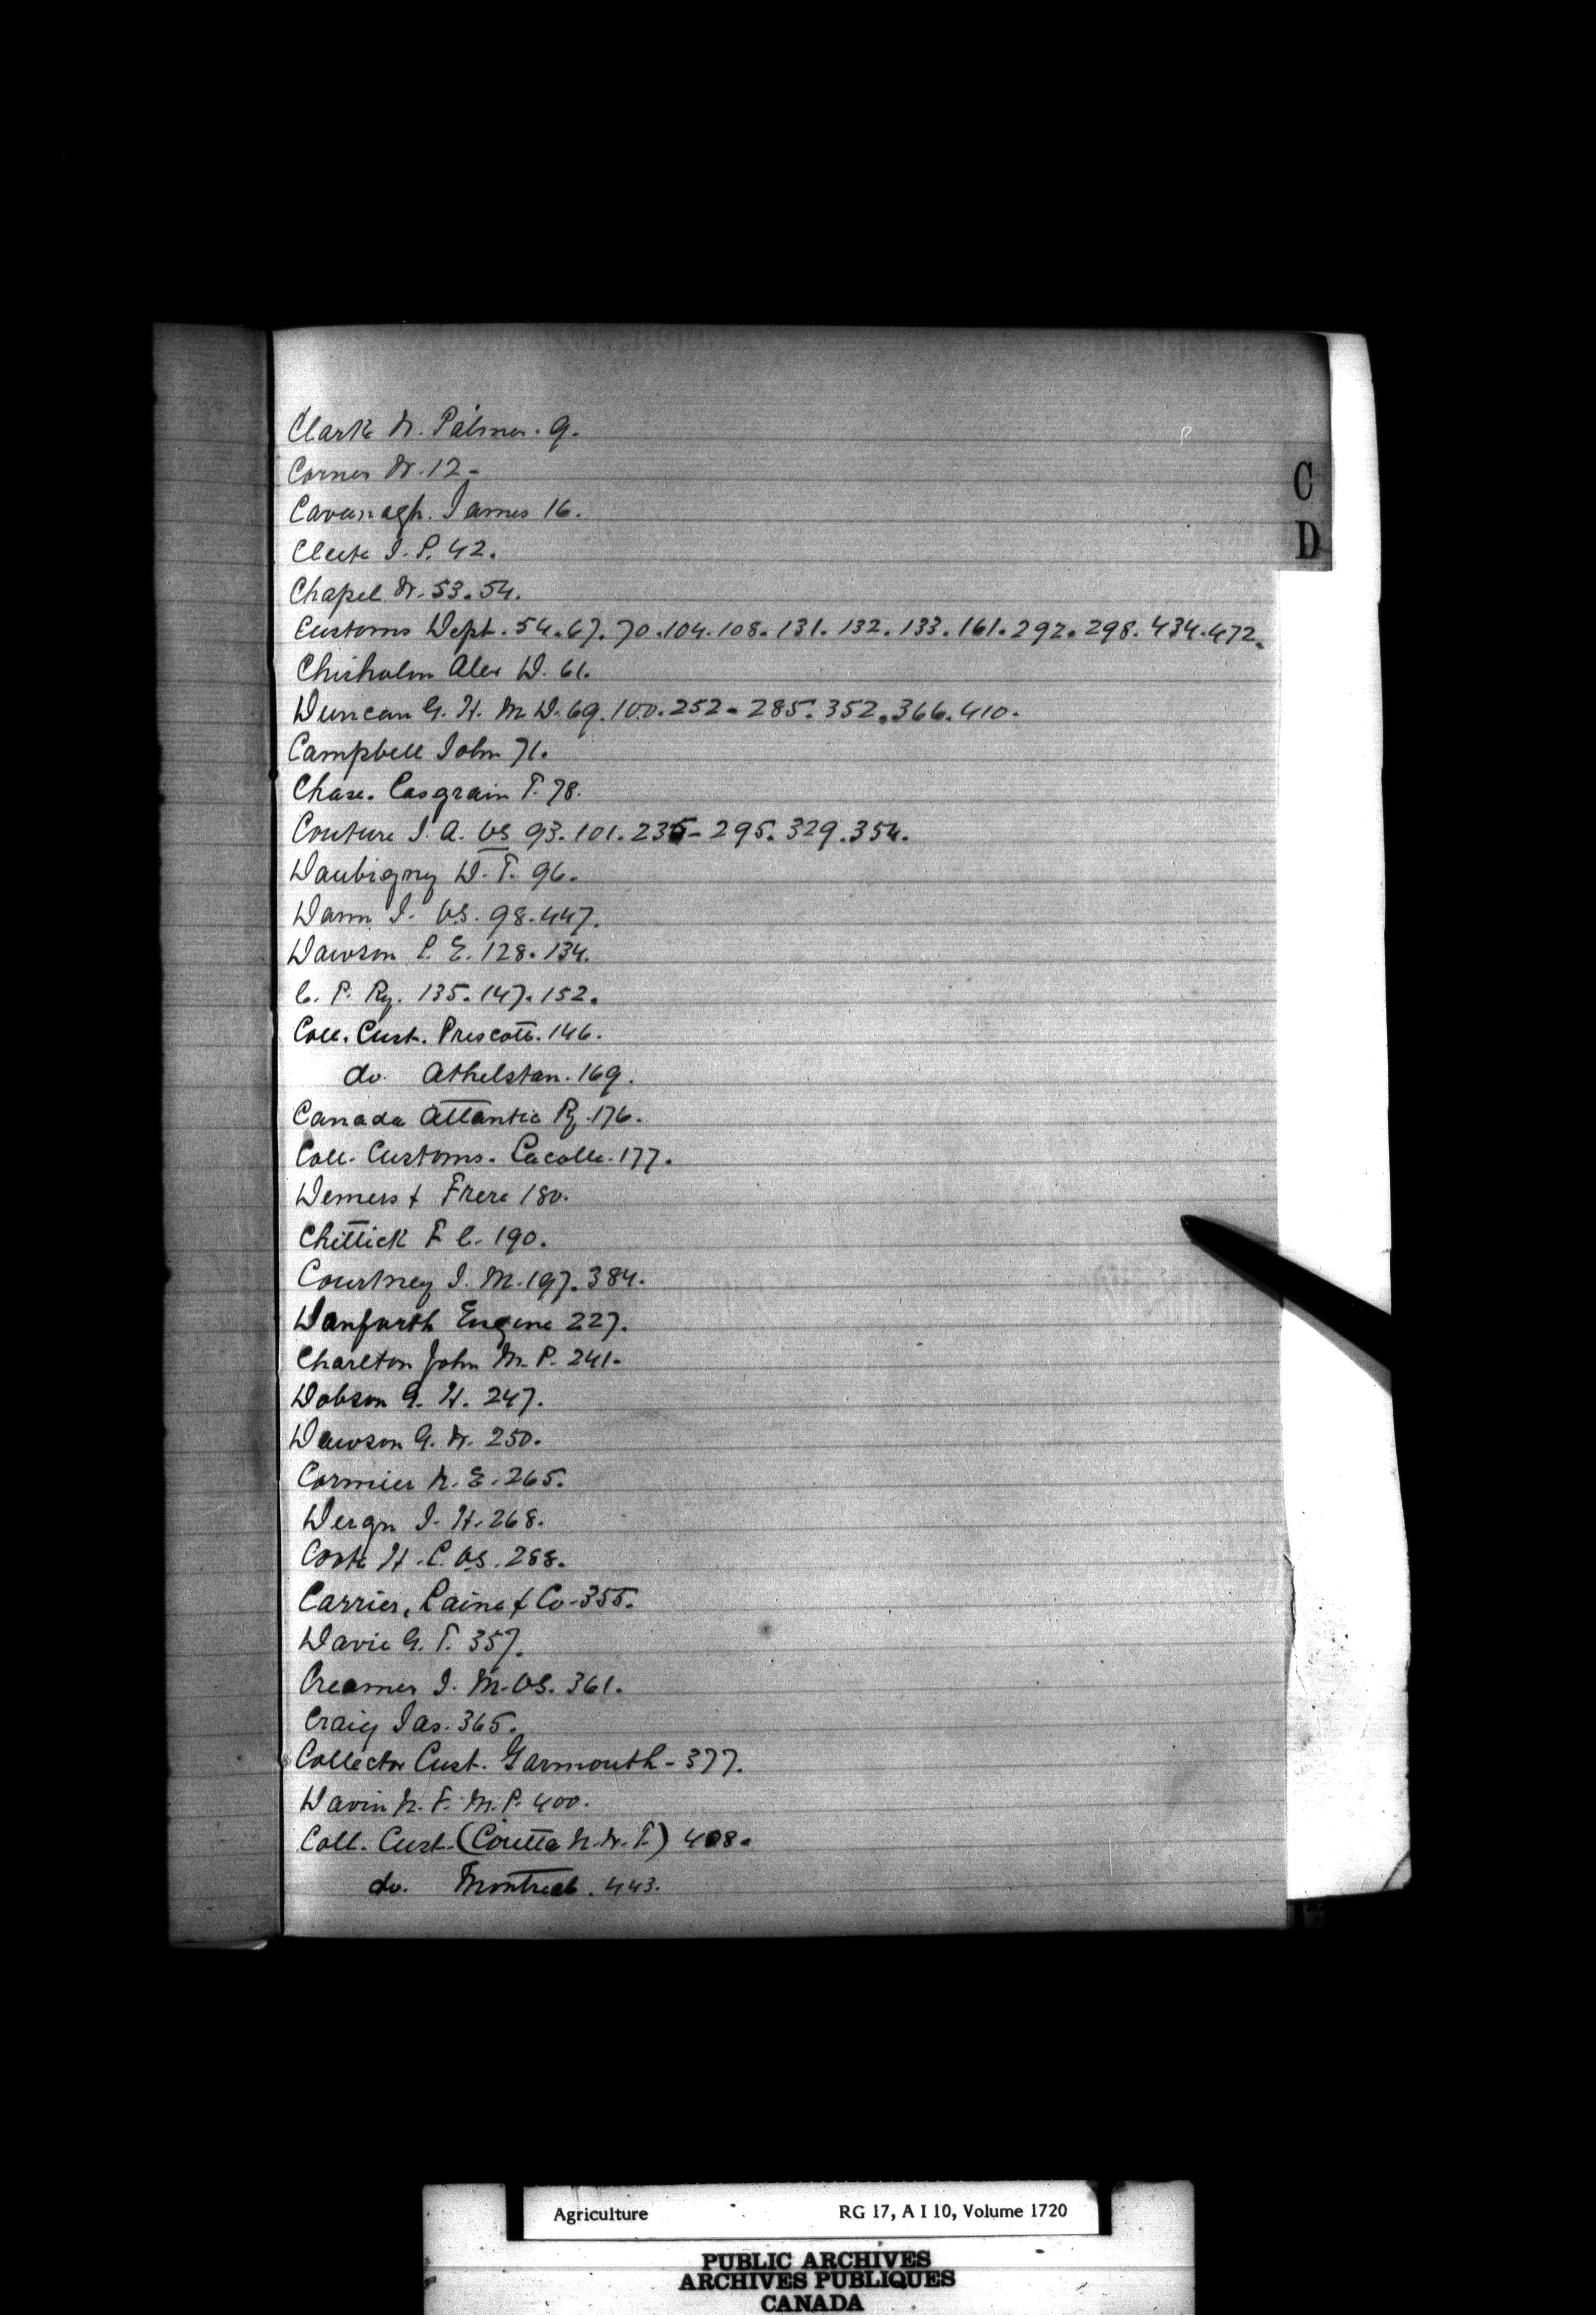 Clark W. Palmer. 9.
Corner W. 12-
Cavanagh. James 16.
Clute J. P. 42.
Chapel W. 53. 54.
Customs Dept. 54. 67. 70. 104. 108. 131. 132. 133. 161. 292. 298. 434. 472.
Chisholm Alex D. 61.
Duncan G. H. M.D. 69. 100. 252- 285. 352. 366. 410.
Campbell John 71.
Chase. Casgrain T. 78.
Couture J. A. VS 93. 101. 235- 295. 329. 354.
Daubigny D. T. 96.
Dann J. VS. 98. 447.
Dawson P. E. 128. 134.
C. P. Ry. 135. 147. 152.
Coll. Cust. Prescott. 146.
do. Athelstan. 169.
Canada Atlantic Ry. 176.
Coll. Customs. Lacolle. 177.
Demers & Frere 180.
Chittick F C. 190.
Courtney J. M. 197. 384.
Danforth Eugene 227.
Charlton John M. P. 241-
Dobson G. H. 247.
Dawson G. W. 250.
Cormier N. E. 265.
J. H. 268.
H. C. VS. 288.
Carrier, Laine & Co- 355.
Davie G. T. 357.
Creamer J. M. VS. 361.
Craig Jas. 365.
Collector Cust. Yarmouth- 377.
Davin N. F. M. P. 400.
Coll. Cust. (Coutts N. W. T.) 408.
do. Montreal. 443.
C
D
Agriculture RG 17, A I 10, Volume 1720
PUBLIC ARCHIVES
ARCHIVES PUBLIQUES
CANADA